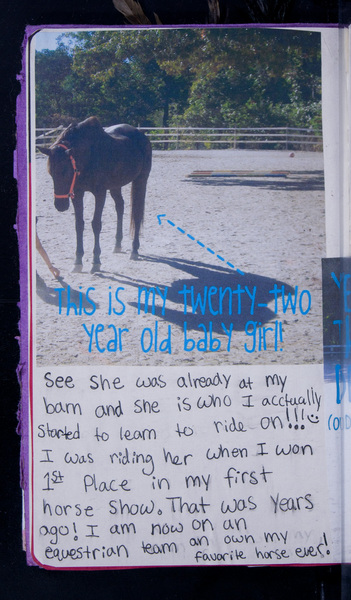 This is my twenty-two
year old baby girl!
See she was already at my
barn and she is who I acctually
started to learn to ride on!!!
I was riding her when I won
1st Place in my first
horse show. That was years
ago! I am now on an
equestrian team an own my
favorite horse ever!